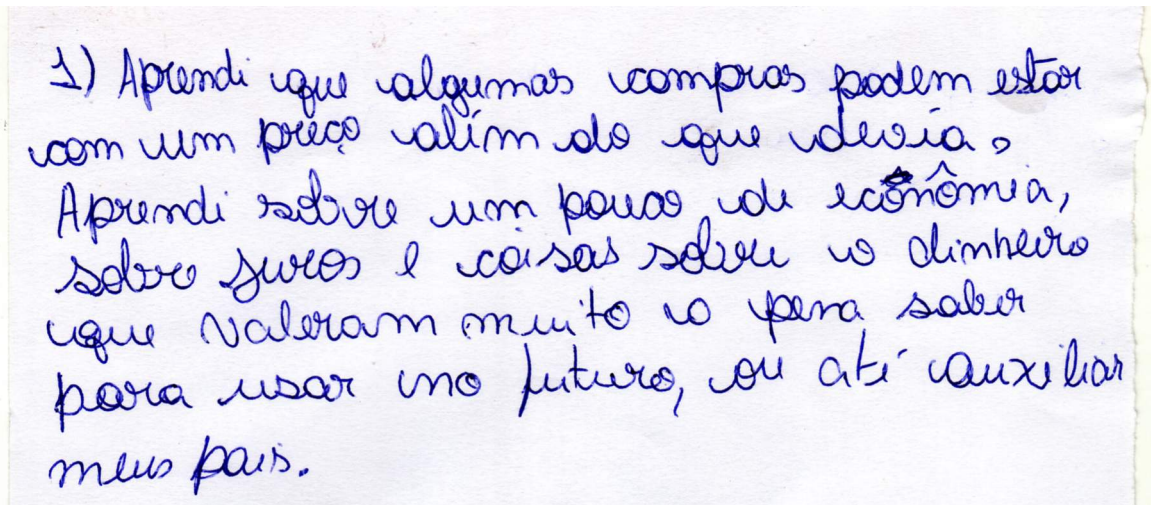 1) Aprendi que algumas compras podem estar
com um preço além do que devia.
Aprendi sobre um pouco de econômia,
sobre juros e coisas sobre o dinheiro
que valeram muito a pena saber
para usar no futuro, ou até auxiliar
meus pais.